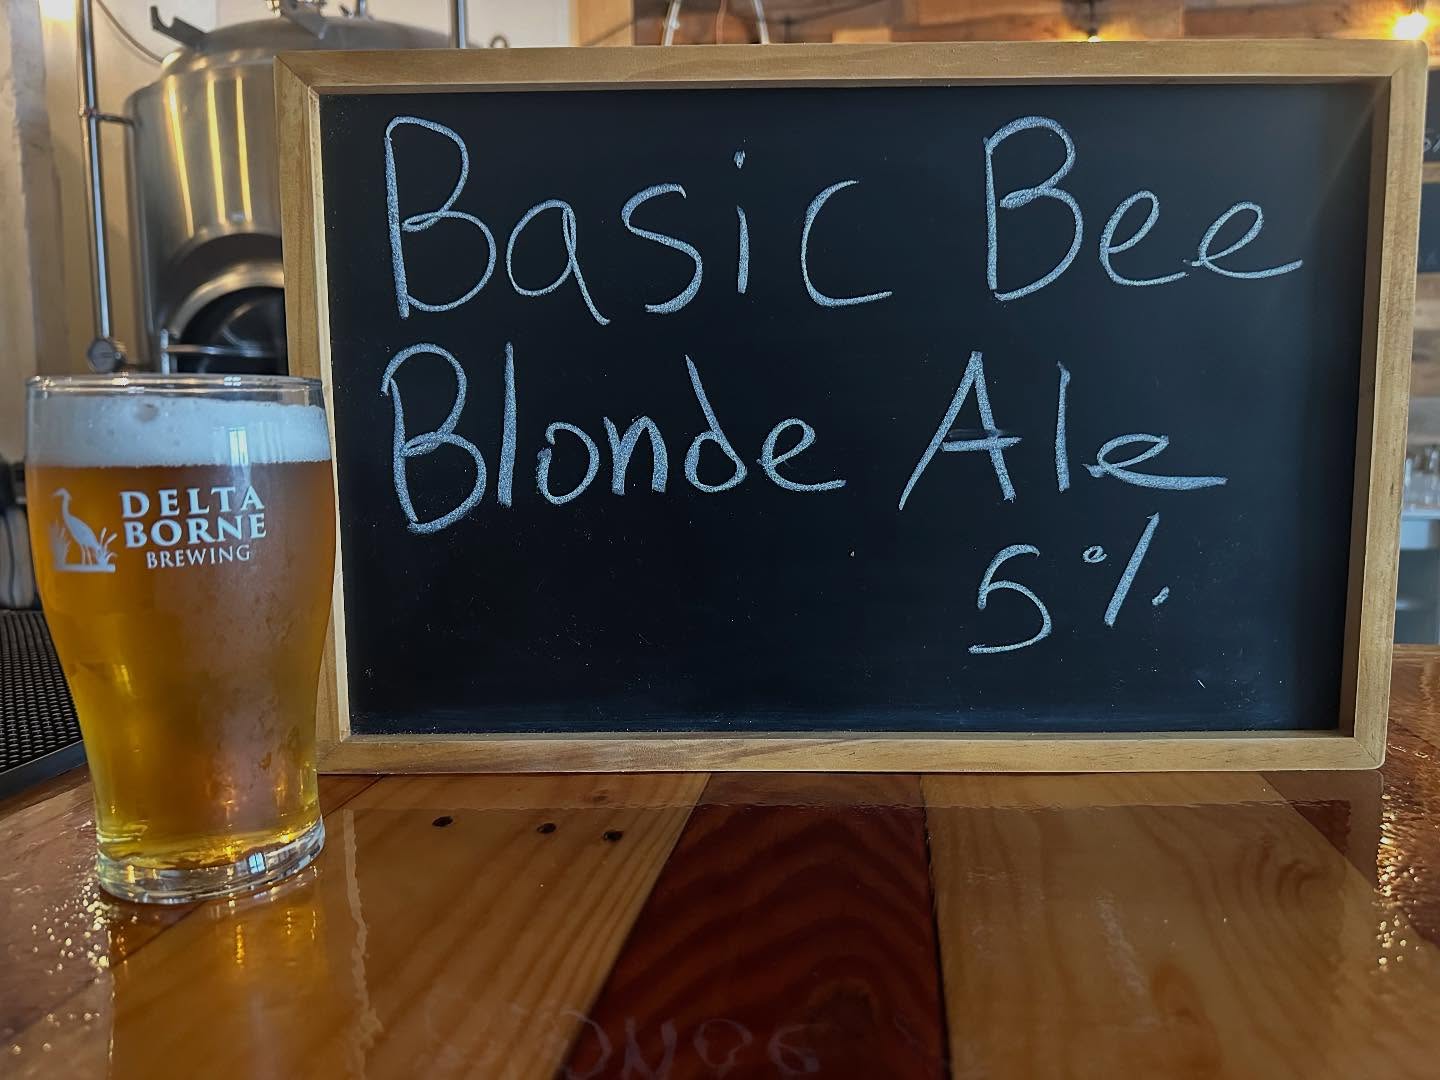 Basic Bee
Blonde Ale
5%
DELTA
BORNE
BREWING